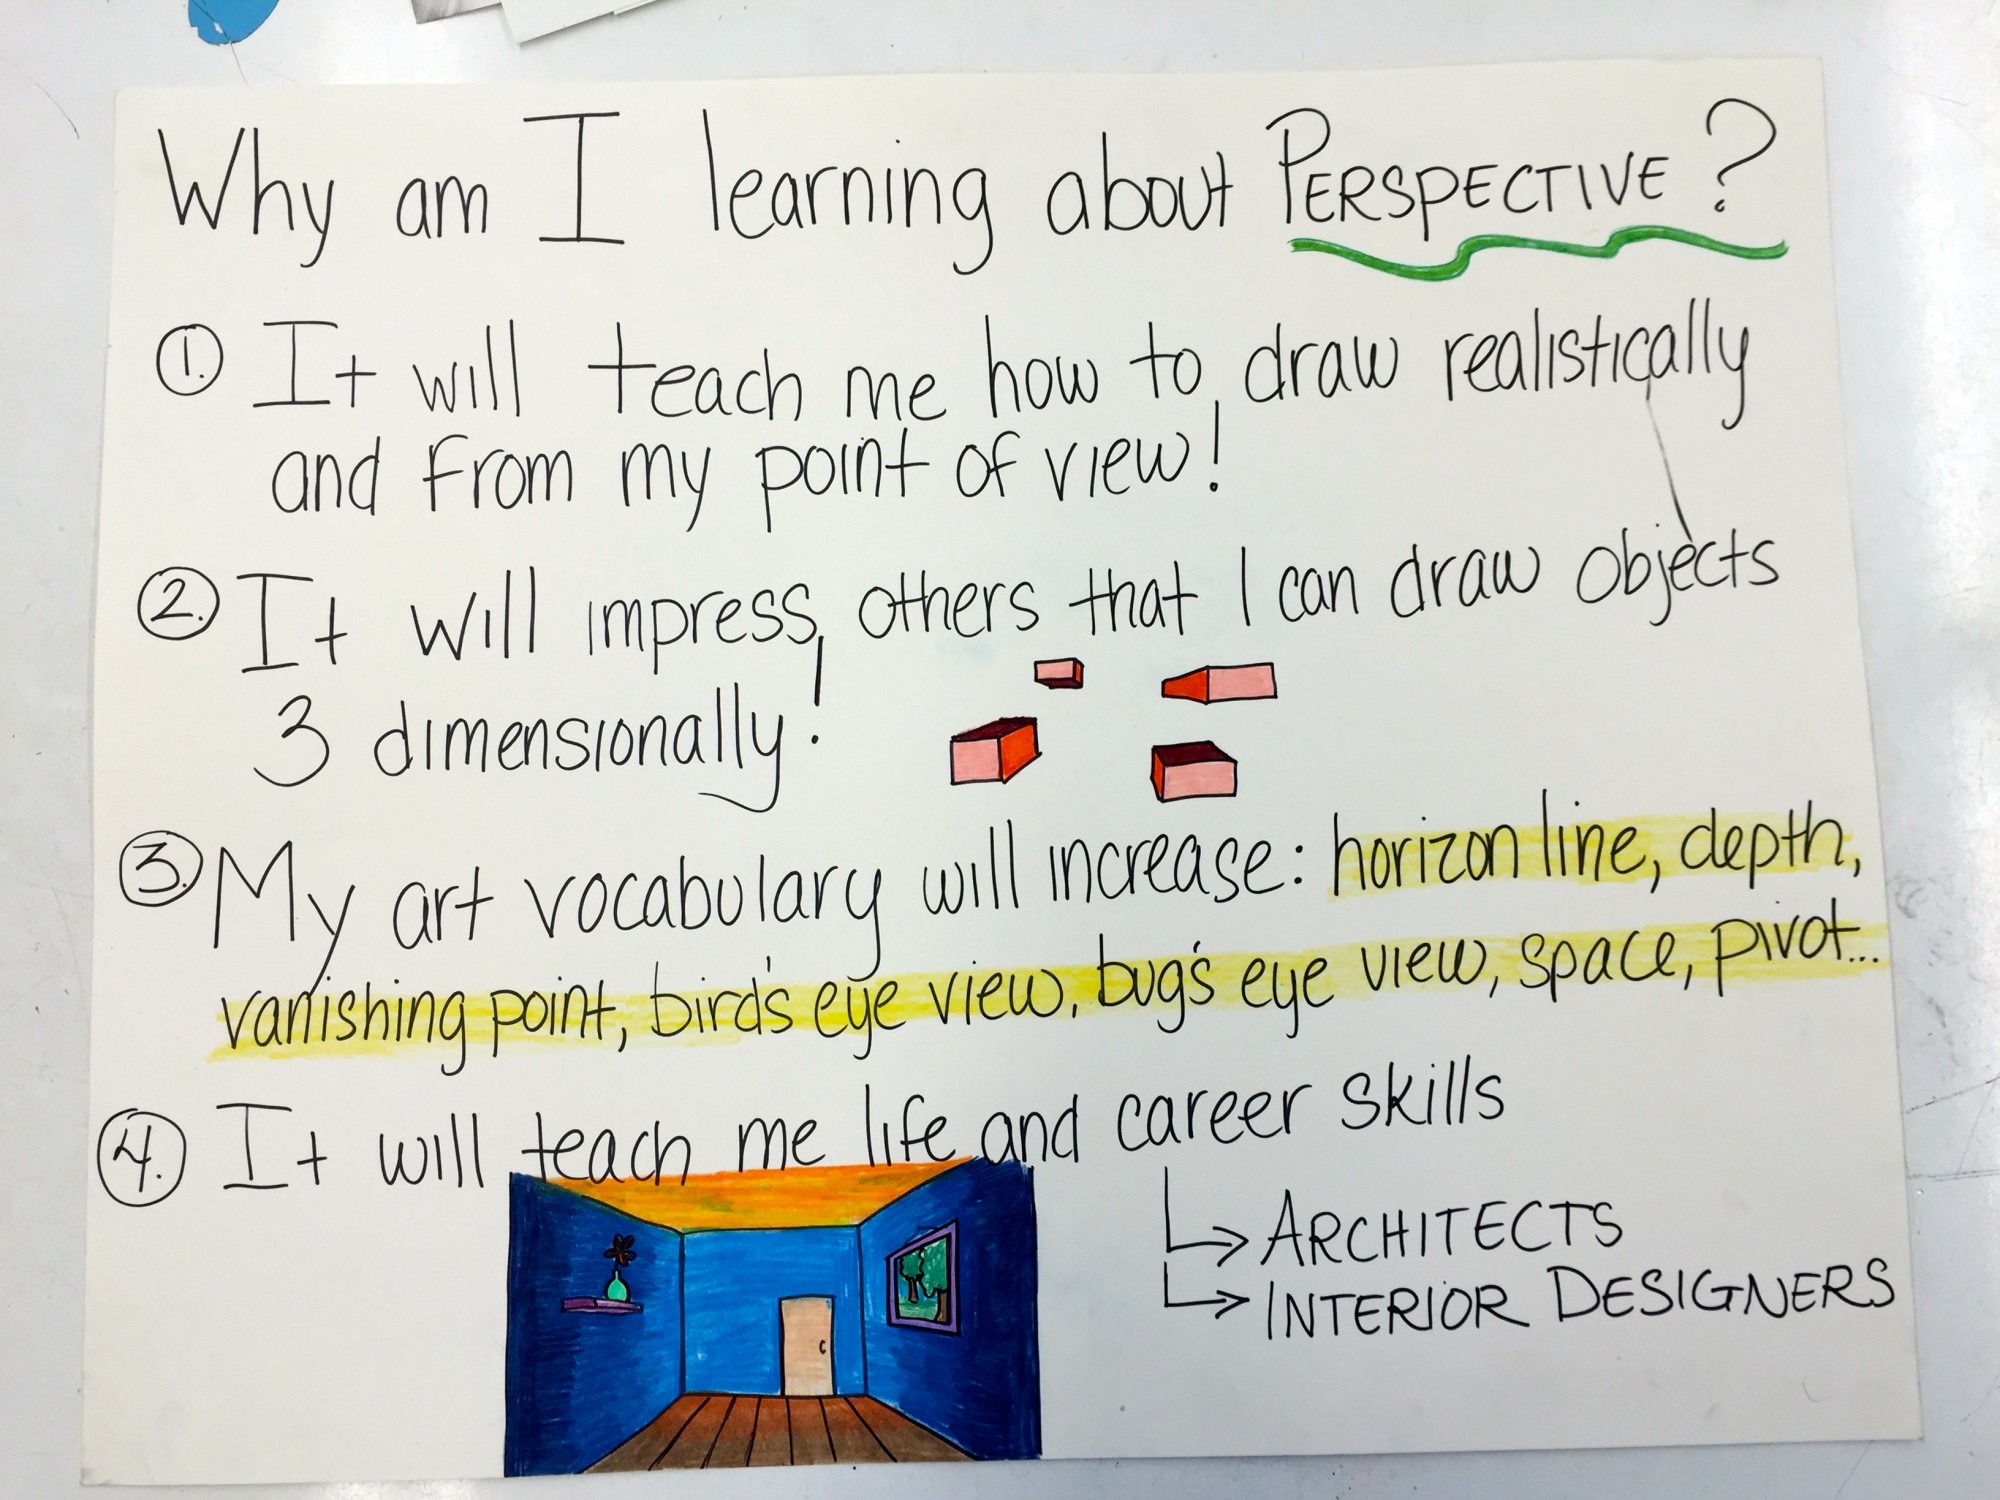 Why am I learning about PERSPECTIVE?
1. It will teach me how to draw realistically
and from my point of view!
2. It will impress others that I can draw objects
3 dimensionally!
3. My art vocabulary will increase: horizon line, depth,
vanishing point, bird's eye view, bug's eye view, space, pivot...
4. It will teach me life and career skills
→ ARCHITECTS
→ INTERIOR DESIGNERS